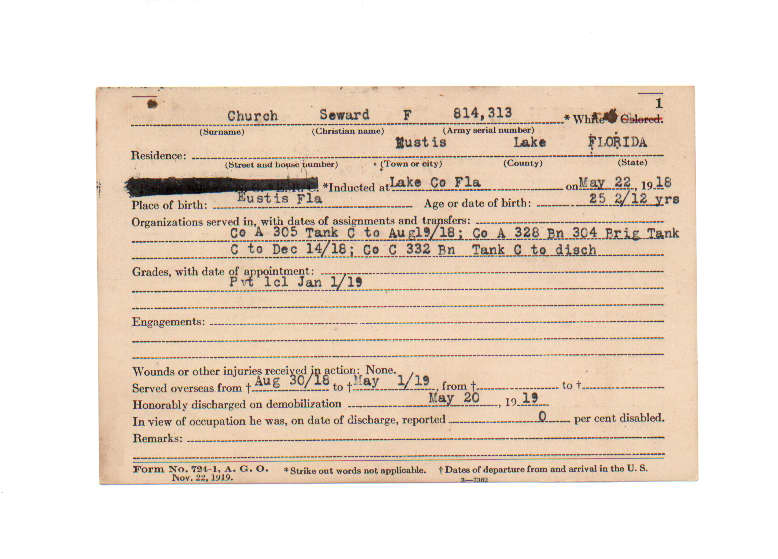 1
Church Seward F 814,313 * White Colored.
(Surname) (Christian name) (Army serial number)
Eustis Lake FLORIDA
Residence:
(Street and house number) (Town or city) (County) (State)
*Inducted at Lake Co Fla on May 22, 1918
Place of birth: Eustis Fla Age or date of birth: 25 2/12 yrs
Organizations served in, with dates of assignments and transfers:
Co A 305 Tank C to Aug19/18; Co A 328 Bn 304 Brig Tank
C to Dec 14/18; Co C 332 Bn Tank C to disch
Grades, with date of appointment:
Pvt 1cl Jan 1/19
Engagements:
Wounds or other injuries received in action: None.
Served overseas from † Aug 30/18 to † May 1/19, from † to †
Honorably discharged on demobilization May 20, 1919
In view of occupation he was, on date of discharge, reported 0 per cent disabled.
Remarks:
Form No. 724-1, A. G. O. *Strike out words not applicable. † Dates of departure from and arrival in the U. S.
Nov. 22, 1919.